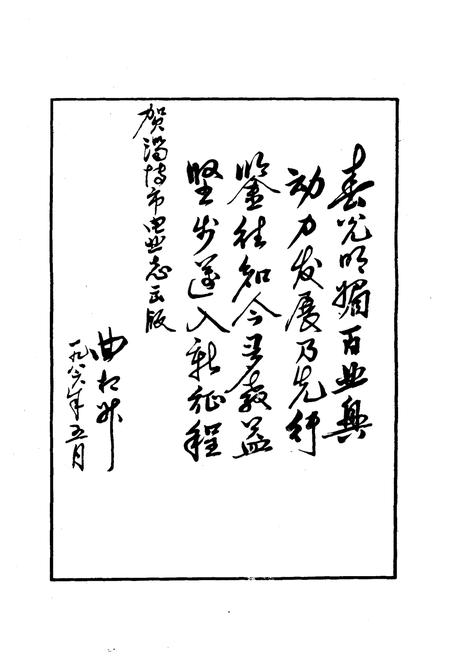 春光明媚百业興
动力发展乃先行
鉴往知今寻教益
坚步邁入新征程
贺淄博市电业志出版
曲
一九八六年五月